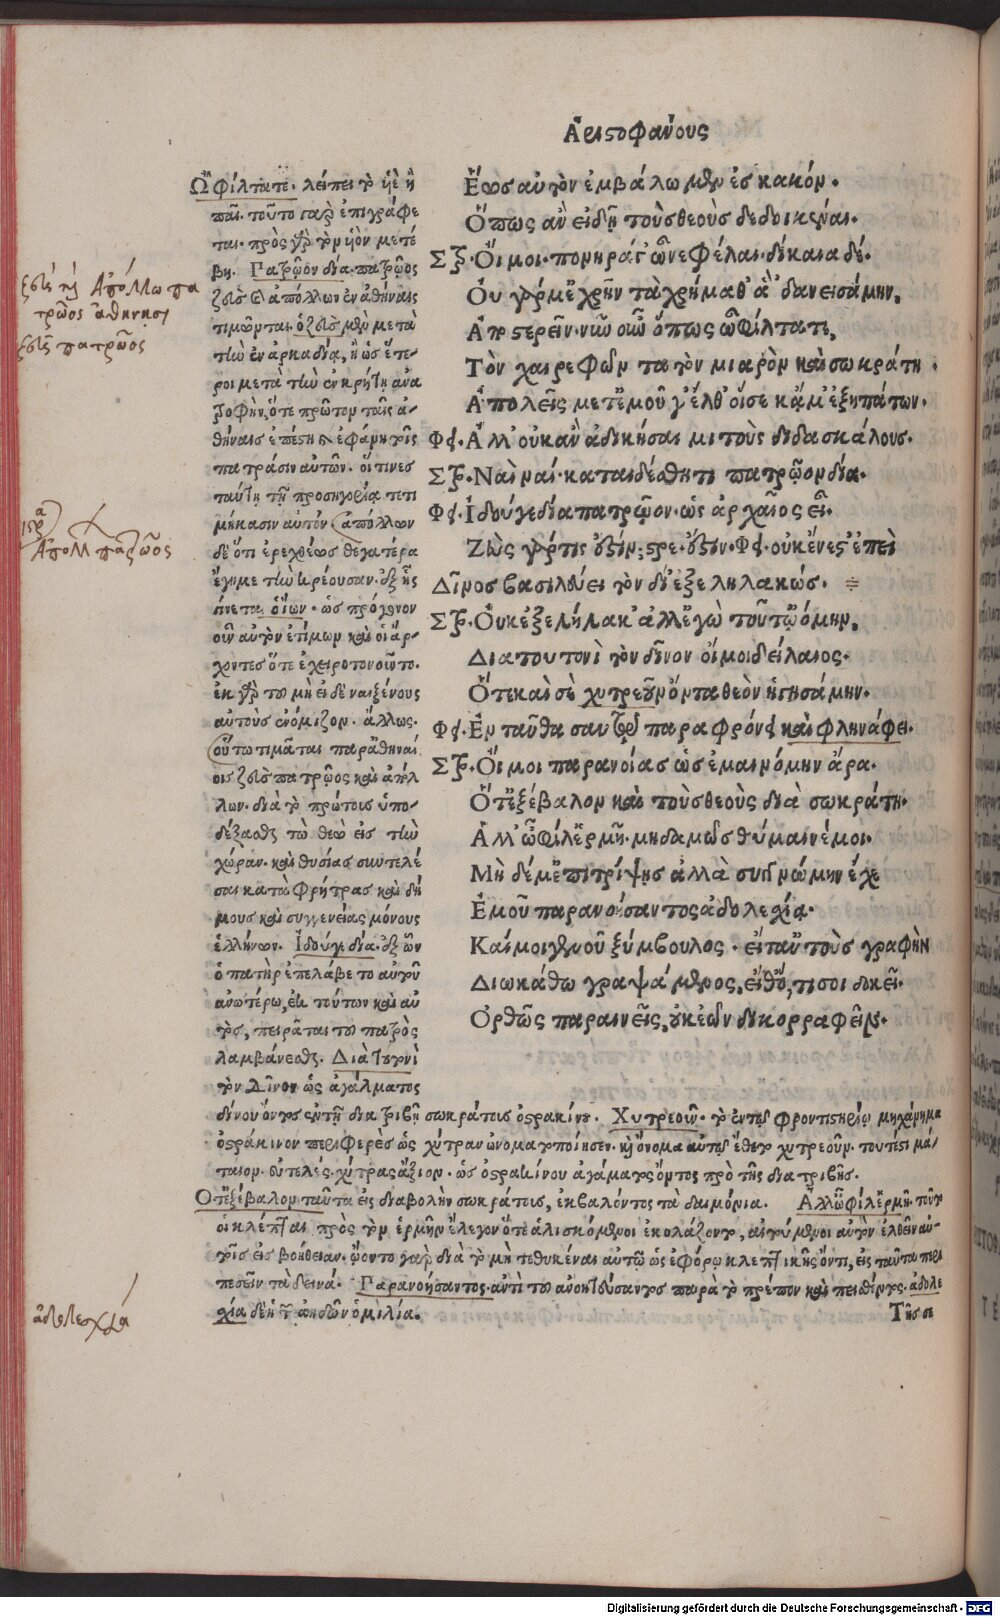 Ἀριστοφάνους
Ἕωσ αὐτὸν ἐμβάλωμεν ἐσ κακόν.
Ὅπως ἂν εἰδῇ τοὺσ θεοὺσ δεδοικέναι.
Στρ. Οἴμοι· πονηρά γ' ὦ νεφέλαι· δίκαια δέ.
Οὐ γάρ μ' ἐχρῆν τὰ χρήμαθ' ἃ 'δανεισάμην,
Ἀποστερεῖν· νῦν οὖν ὅπως ὦ φίλτατε,
Τὸν χαιρεφῶντα τὸν μιαρὸν καὶ σωκράτη
Ἀπολεῖς μετ' ἐμοῦ γ' ἐλθ' οἵ σε κἄμ' ἐξηπάτων.
Φει. Ἀλλ' οὐκ ἂν ἀδικήσαιμι τοὺς διδασκάλους.
Στρ. Ναὶ ναί· καταιδέσθητι πατρῷον δία.
Φει. Ἰδού γε δία πατρῷον· ὡς ἀρχαῖος εἶ.
Ζεὺς γάρ τις ἔστιν; στρε. ἔστιν. Φει. οὐκ ἔνεστ' ἐπεὶ
Δῖνος βασιλεύει τὸν δί' ἐξεληλακώς.
Στρ. Οὐκ ἐξελήλακ' ἀλλ' ἐγὼ τοῦτ' ᾠόμην,
Διὰ τουτονὶ τὸν δῖνον οἴμοι δείλαιος.
Ὅτε καὶ σὲ χυτρεοῦν ὄντα θεὸν ἡγησάμην.
Φει. Ἐνταῦθα σαυτῷ παραφρόνει καὶ φληνάφει.
Στρ. Οἴμοι παρανοίας ὡς ἐμαινόμην ἄρα.
Ὅτ' ἐξέβαλον καὶ τοὺσ θεοὺς διὰ σωκράτη.
Ἀλλ' ὦ φίλ' ἑρμῆ· μηδαμῶσ θύμαινέ μοι.
Μὴ δέ μ' ἐπιτρίψῃς ἀλλὰ συγγνώμην ἔχε
Ἐμοῦ παρανοίσαντος ἀδολεχίᾳ.
Καί μοι γενοῦ ξύμβουλος· εἴτ' αὐτοὺσ γραφὴν
Διωκάθω γραψάμενος, εἴθ' ὅ, τι σοι δοκεῖ.
Ὀρθῶς παραινεῖς, οὐκ ἐῶν δικορραφεῖν.
Ὦ φίλτατε. λείπει τὸ υἱὲ ἢ
παῖ· τοῦτο γὰρ ἐπιγράφε
ται· πρὸς γὰρ τὸν υἱὸν μετέ
βη. Πατρῷον δία. πατρῷος
ζεὺς καὶ ἀπόλλων ἐν ἀθήναις
τιμῶνται. ὁ ζεὺς μὲν μετὰ
τὴν ἐν ἀρκαδίᾳ, ἢ ὡς ἕτε-
ροι μετὰ τὴν ἐν κρήτῃ ἀνα
τροφὴν, ὅτε πρῶτον ταῖς ἀ-
θήναισ ἐπέστη καὶ ἐφάνη τοῖς
πατράσιν αὐτῶν. οἵτινες
ταύτῃ τῇ προσηγορίᾳ τετι
μήκασιν αὐτόν. ἀπόλλων
δὲ ὅτι ἐρεχθέως θυγατέρα
ἔγημε τὴν κρέουσαν. ἐξ ἧς
γίνεται ὁ ἴων. ὡς πρόγονον
οὖν αὐτὸν ἐτίμων καὶ οἱ ἄρ-
χοντεσ ὅτε ἐχειροτονοῦντο.
ἐκ γὰρ τοῦ μὴ εἰδέναι ξένους
αὐτοὺς ἐνόμιζον. ἄλλως.
οὕτω τιμᾶται παρ' ἀθηναί
οις ζεὺς πατρῷος καὶ ἀπόλ
λων. διὰ τὸ πρώτους ὑπο-
δέξασθαι τὼ θεὼ εἰς τὴν
χώραν. καὶ θυσίας συντελέ
σαι κατὰ φρήτρας καὶ δή
μους καὶ συγγενείας μόνους
ἑλλήνων. Ἰδού γε δία. ἐξ ὧν
ὁ πατὴρ ἐπελάβετο αὐτοῦ
ἀνωτέρω, ἐκ τούτων καὶ αὐ
τὸς, πειρᾶται τοῦ πατρὸς
λαμβάνεσθαι. Διὰ τουτονὶ
τὸν Δῖνον ὡς ἀγάλματος
δίνου ὄντος ἐν τῇ διατριβῇ σωκράτους ὀστρακίνου. Χυτρεοῦν. τὸ ἐν τῷ φροντιστηρίῳ μηχάνημα
ὀστράκινον περιφερὲς ὡς χύτραν ὠνοματοποίησεν. καὶ ὄνομα αὐτῷ ἔθετο χυτρεοῦν. τουτέστι μά/
ταιον. εὐτελές. χύτρας ἄξιον. ὡς ὀστρακίνου ἀγάλματος ὄντος πρὸ τῆς διατριβῆς.
Ὅτ' ἐξέβαλον. ταῦτα εἰς διαβολὴν σωκράτους, ἐκβαλόντος τὰ δαιμόνια. Ἀλλ' ὦ φίλ' ἑρμῆ. τοῦτο
οἱ κλέπται πρὸς τὸν ἑρμῆν ἔλεγον ὅτε ἁλισκόμενοι ἐκολάζοντο, αἰτούμενοι αὐτὸν ἐλθεῖν αὐ-
τοῖς εἰς βοήθειαν. ᾤοντο γὰρ διὰ τὸ μὴ τεθυκέναι αὐτῷ ὡς ἐφόρῳ κλεπτικῆς ὄντι, εἰς ταῦτα περι
πεσεῖν τὰ δεινά. Παρανοήσαντος. ἀντὶ τοῦ ἀνοηταύσαντος παρὰ τὸ πρέπον καὶ πειθόμενος. ἀδολε
χία δὲ ἡ τῶν ἀηδῶν ὁμιλία. Τῆς σε
Ζεὺς καὶ Ἀπόλλων πα
τρῷος ἀθήνησι
Ζεὺς πατρῷος
Ἀπόλλ πατρῷος
ἀδολεσχία
Digitalisierung gefördert durch die Deutsche Forschungsgemeinschaft - DFG